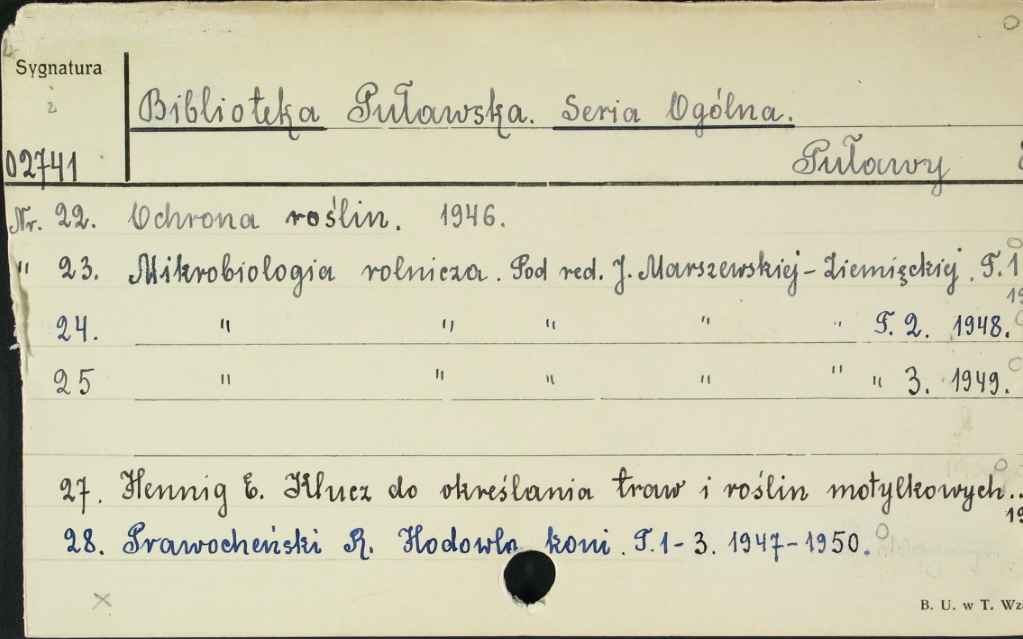 Sygnatura
Biblioteka Puławska. Seria Ogólna.
02741
Puławy
Nr. 22. Ochrona roślin. 1946.
" 23. Mikrobiologia rolnicza. Pod red. J. Marszewskiej-Ziemięckiej. T. 1
19
24. " " " " " T. 2. 1948.
25 " " " " " " 3. 1949.
27. Hennig E. Klucz do określania traw i roślin motylkowych..
19
28. Prawocheński R. Hodowla koni. T. 1-3. 1947-1950.
B. U. w T. Wz